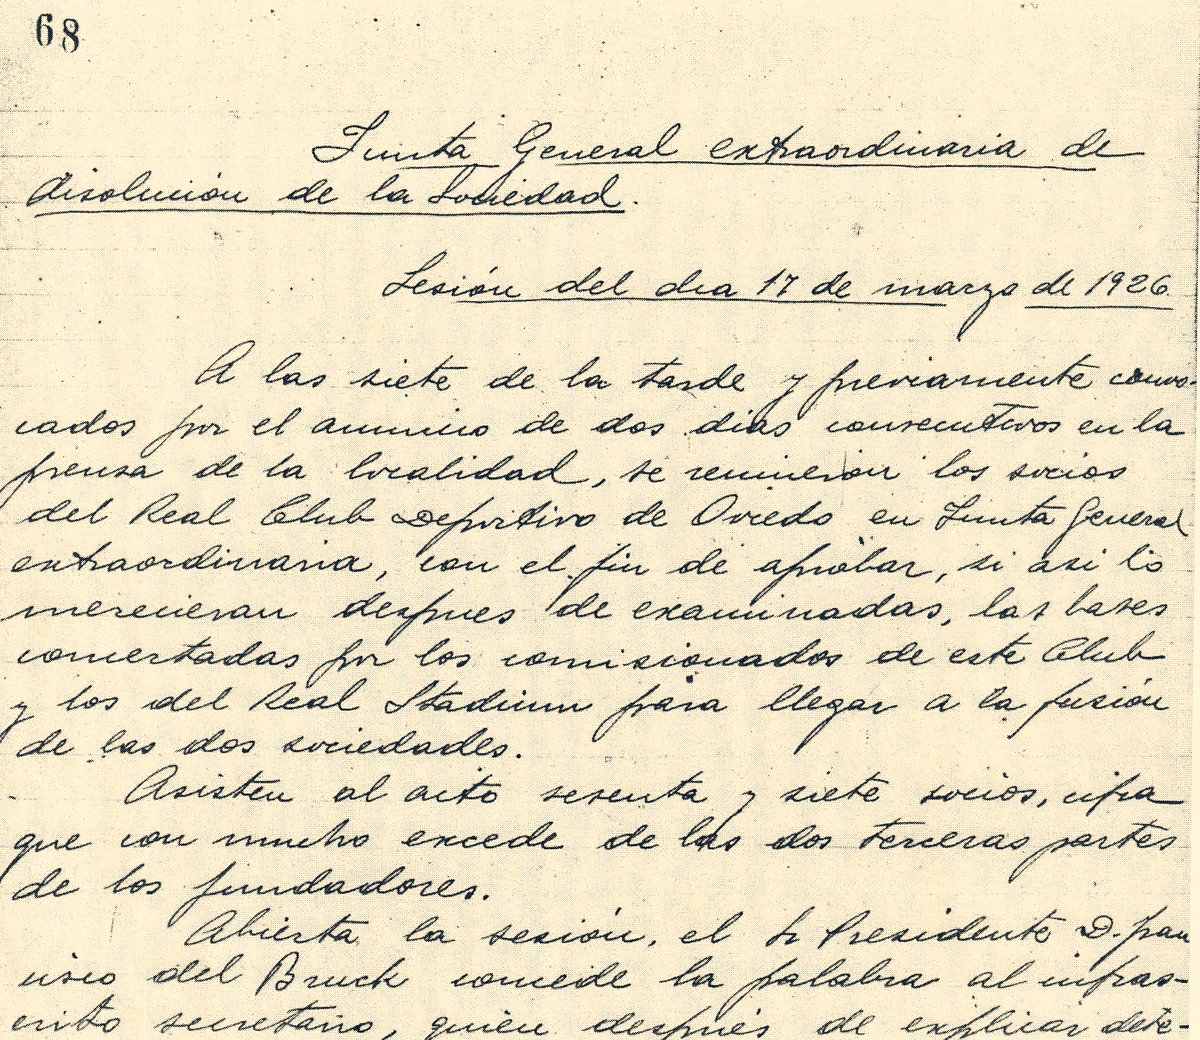 68
Junta General extraordinaria de
disolución de la Sociedad.
Sesión del dia 17 de marzo de 1926.
A las siete de la tarde y previamente convo-
cados por el anuncio de dos dias consecutivos en la
prensa de la localidad, se reunieron los socios
del Real Club Deportivo de Oviedo en Junta General
extraordinaria, con el fin de aprobar, si asi lo
merecieran despues de examinadas, las bases
concertadas por los comisionados de este Club
y los del Real Stadium para llegar a la fusión
de las dos sociedades.
Asisten al acto sesenta y siete socios, cifra
que con mucho excede de las dos terceras partes
de los fundadores.
Abierta la sesión, el Sr Presidente D. Fran
cisco del Bruck concede la palabra al infras-
crito secretario, quien después de explicar dete-